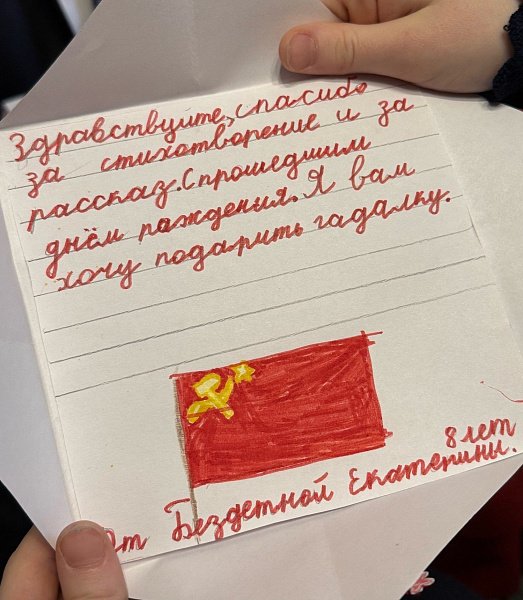 Здравствуйте, спасибо
за стихотворение и за
рассказ. С прошедшим
днём раждения. Я вам
хочу подарить гадалку.
8 лет
От Бездетной Екатерины.